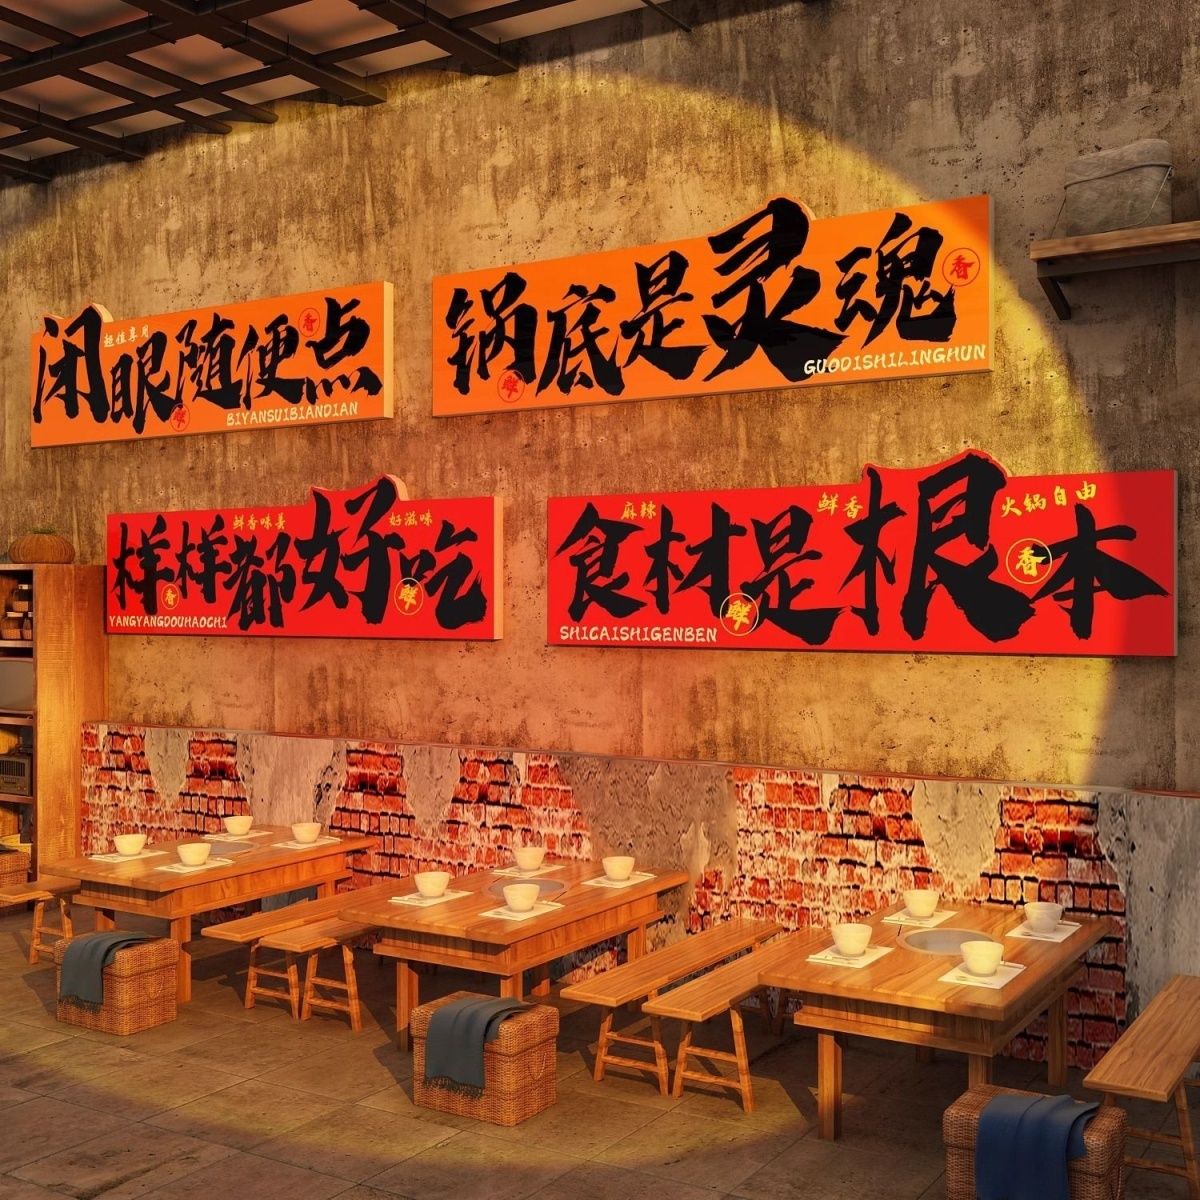 超值享用
闭眼随便点
香
鲜
BIYANSUIBIANDIAN
锅底是灵魂
香
鲜
GUODISHILINGHUN
鲜香味美
好滋味
样样都好吃
香
鲜
YANGYANGDOUHAOCHI
麻辣
鲜香
火锅自由
食材是根本
香
鲜
SHICAISHIGENBEN